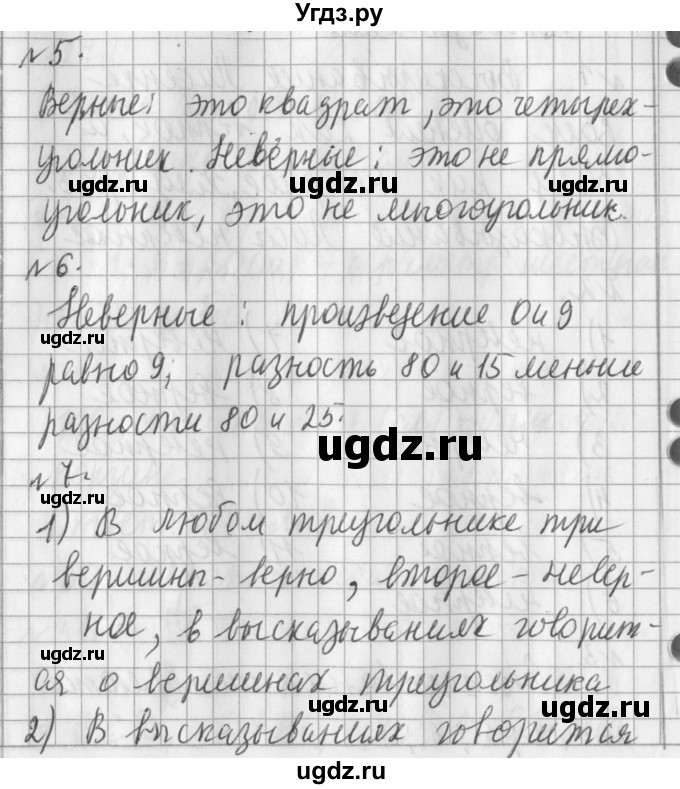 Угдз.ру
№5.
Верные: это квадрат, это четырех-
угольник. Неверные: это не прямо-
ugdz.ru ugdz.ru ugdz.ru
угольник, это не многоугольник.
№6.
Неверные: произведение 0 и 9
ugdz.ru
равно 9; разность 80 и 15 меньше
разности 80 и 25.
ugdz.ru ugdz.ru
№7.
1) В любом треугольнике три
вершины - верно, второе - невер-
ugdz.ru ugdz.ru ugdz.ru
ное, в высказываниях говорит-
ugdz.ru
ся о вершинах треугольника
ugdz.ru ugdz.ru
2) В высказываниях говорится
ugdz.ru